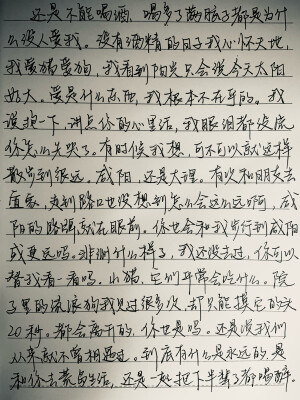 还是不能喝酒，喝多了满脑子都是为什
么没人爱我。没有酒精的日子我心怀天地，
我爱猫爱狗，我看到阳光只会说今天太阳
好大，爱是什么东西，我根本不在乎的。我
说抱一下，讲点你的心里话，我眼泪都没流
你怎么先哭了。有时候我想，可不可以就这样
散步到很远。咸阳，还是大理。有次和朋友去
，走到路口也没想到怎么会这么远啊，咸
阳的路牌就在眼前。你也会和我步行到咸阳
或更远吗。非洲什么样子，我还没去过，你可以
替我看一看吗。小猫，它们平常会吃什么。院
子里的流浪狗我见过很多次，却只能摸它的头
20秒。都会离开的，你也是吗。还是说我们
从来就不曾相遇过。到底有什么是永远的，是
和你去荒岛生活，还是一起把下半辈子都喝醉。